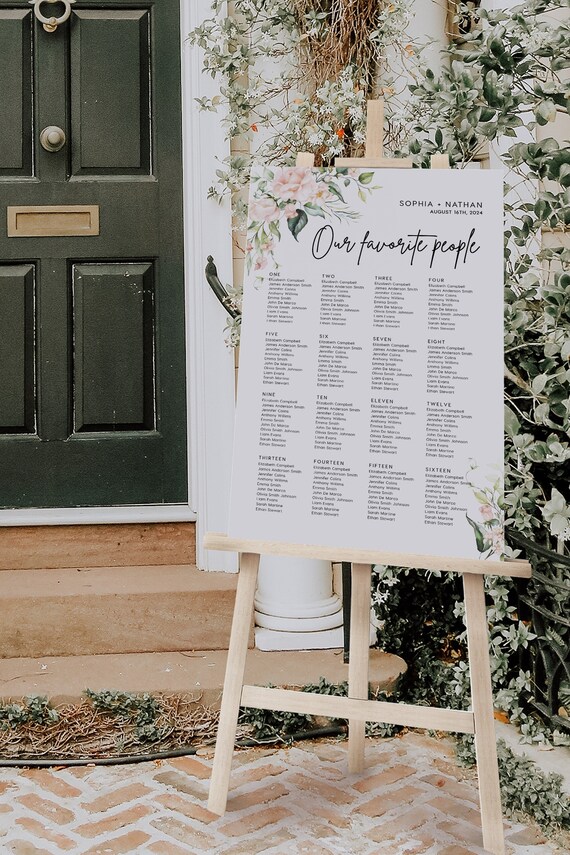 SOPHIA + NATHAN
AUGUST 16TH, 2024
Our favorite people
ONE
Elizabeth Campbell
James Anderson Smith
Jennifer Colins
Anthony Wilkins
Emma Smith
John De Marco
Olivia Smith Johnson
Liam Evans
Sarah Martine
Ethan Stewart
TWO
Elizabeth Campbell
James Anderson Smith
Jennifer Colins
Anthony Wilkins
Emma Smith
John De Marco
Olivia Smith Johnson
Liam Evans
Sarah Martine
Ethan Stewart
THREE
Elizabeth Campbell
James Anderson Smith
Jennifer Colins
Anthony Wilkins
Emma Smith
John De Marco
Olivia Smith Johnson
Liam Evans
Sarah Martine
Ethan Stewart
FOUR
Elizabeth Campbell
James Anderson Smith
Jennifer Colins
Anthony Wilkins
Emma Smith
John De Marco
Olivia Smith Johnson
Liam Evans
Sarah Martine
Ethan Stewart
FIVE
Elizabeth Campbell
James Anderson Smith
Jennifer Colins
Anthony Wilkins
Emma Smith
John De Marco
Olivia Smith Johnson
Liam Evans
Sarah Martine
Ethan Stewart
SIX
Elizabeth Campbell
James Anderson Smith
Jennifer Colins
Anthony Wilkins
Emma Smith
John De Marco
Olivia Smith Johnson
Liam Evans
Sarah Martine
Ethan Stewart
SEVEN
Elizabeth Campbell
James Anderson Smith
Jennifer Colins
Anthony Wilkins
Emma Smith
John De Marco
Olivia Smith Johnson
Liam Evans
Sarah Martine
Ethan Stewart
EIGHT
Elizabeth Campbell
James Anderson Smith
Jennifer Colins
Anthony Wilkins
Emma Smith
John De Marco
Olivia Smith Johnson
Liam Evans
Sarah Martine
Ethan Stewart
NINE
Elizabeth Campbell
James Anderson Smith
Jennifer Colins
Anthony Wilkins
Emma Smith
John De Marco
Olivia Smith Johnson
Liam Evans
Sarah Martine
Ethan Stewart
TEN
Elizabeth Campbell
James Anderson Smith
Jennifer Colins
Anthony Wilkins
Emma Smith
John De Marco
Olivia Smith Johnson
Liam Evans
Sarah Martine
Ethan Stewart
ELEVEN
Elizabeth Campbell
James Anderson Smith
Jennifer Colins
Anthony Wilkins
Emma Smith
John De Marco
Olivia Smith Johnson
Liam Evans
Sarah Martine
Ethan Stewart
TWELVE
Elizabeth Campbell
James Anderson Smith
Jennifer Colins
Anthony Wilkins
Emma Smith
John De Marco
Olivia Smith Johnson
Liam Evans
Sarah Martine
Ethan Stewart
THIRTEEN
Elizabeth Campbell
James Anderson Smith
Jennifer Colins
Anthony Wilkins
Emma Smith
John De Marco
Olivia Smith Johnson
Liam Evans
Sarah Martine
Ethan Stewart
FOURTEEN
Elizabeth Campbell
James Anderson Smith
Jennifer Colins
Anthony Wilkins
Emma Smith
John De Marco
Olivia Smith Johnson
Liam Evans
Sarah Martine
Ethan Stewart
FIFTEEN
Elizabeth Campbell
James Anderson Smith
Jennifer Colins
Anthony Wilkins
Emma Smith
John De Marco
Olivia Smith Johnson
Liam Evans
Sarah Martine
Ethan Stewart
SIXTEEN
Elizabeth Campbell
James Anderson Smith
Jennifer Colins
Anthony Wilkins
Emma Smith
John De Marco
Olivia Smith Johnson
Liam Evans
Sarah Martine
Ethan Stewart